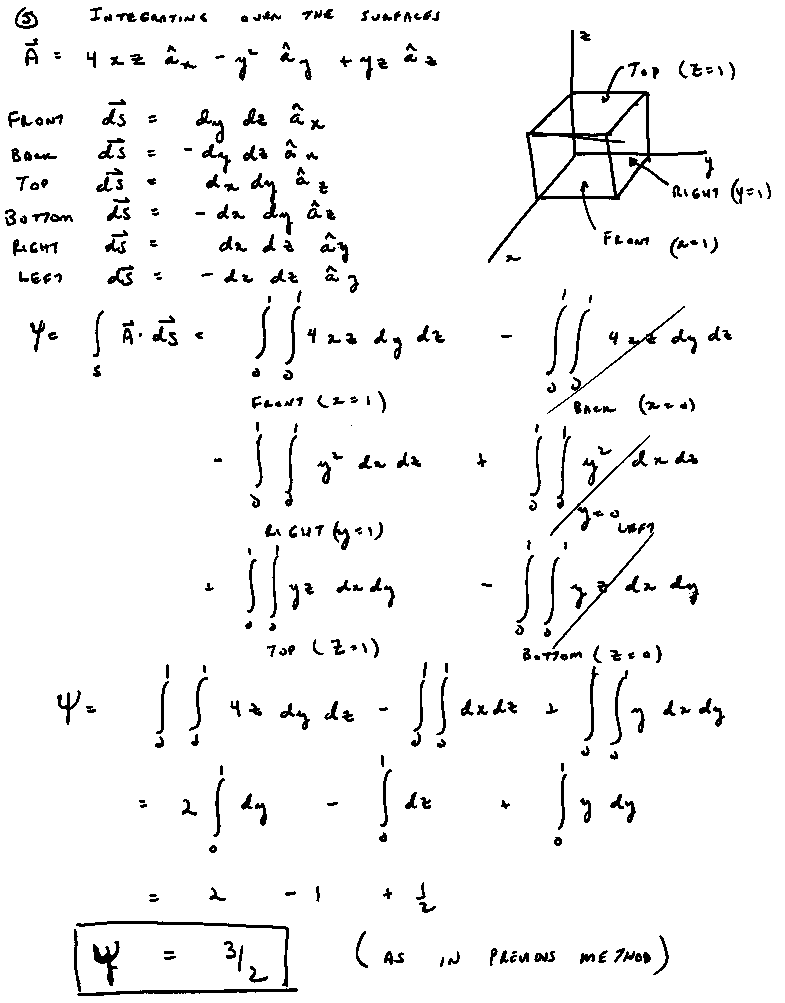 ⑤ INTEGRATING OVER THE SURFACES
A⃗ = 4xz âx - y² ây + yz âz
z
TOP (z=1)
y
RIGHT (y=1)
FRONT (x=1)
x
FRONT ds⃗ = dy dz âx
BACK ds⃗ = -dy dz âx
TOP ds⃗ = dx dy âz
BOTTOM ds⃗ = -dx dy âz
RIGHT ds⃗ = dx dz ây
LEFT ds⃗ = -dx dz ây
Ψ = ∫_S A⃗·ds⃗ = ∫₀¹ ∫₀¹ 4xz dy dz - ∫₀¹ ∫₀¹ 4xz dy dz
FRONT (x=1) BACK (x=0)
- ∫₀¹ ∫₀¹ y² dx dz + ∫₀¹ ∫₀¹ y² dx dz
RIGHT (y=1) y=0 LEFT
+ ∫₀¹ ∫₀¹ yz dx dy - ∫₀¹ ∫₀¹ yz dx dy
TOP (z=1) BOTTOM (z=0)
Ψ = ∫₀¹ ∫₀¹ 4z dy dz - ∫₀¹ ∫₀¹ dx dz + ∫₀¹ ∫₀¹ y dx dy
= 2 ∫₀¹ dy - ∫₀¹ dz + ∫₀¹ y dy
= 2 - 1 + 1/2
Ψ = 3/2 (AS IN PREVIOUS METHOD)